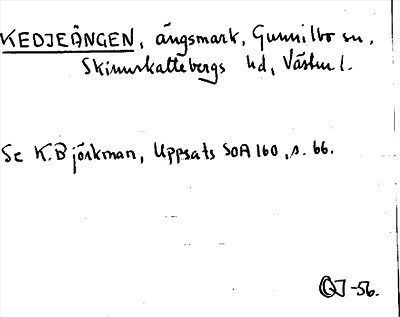 KEDJEÄNGEN, ängsmark, Gunnilbo sn,
Skinnskattebergs hd, Västm l.
Se K. Björkman, Uppsats SOA 160, s. 66.
GJ -56.